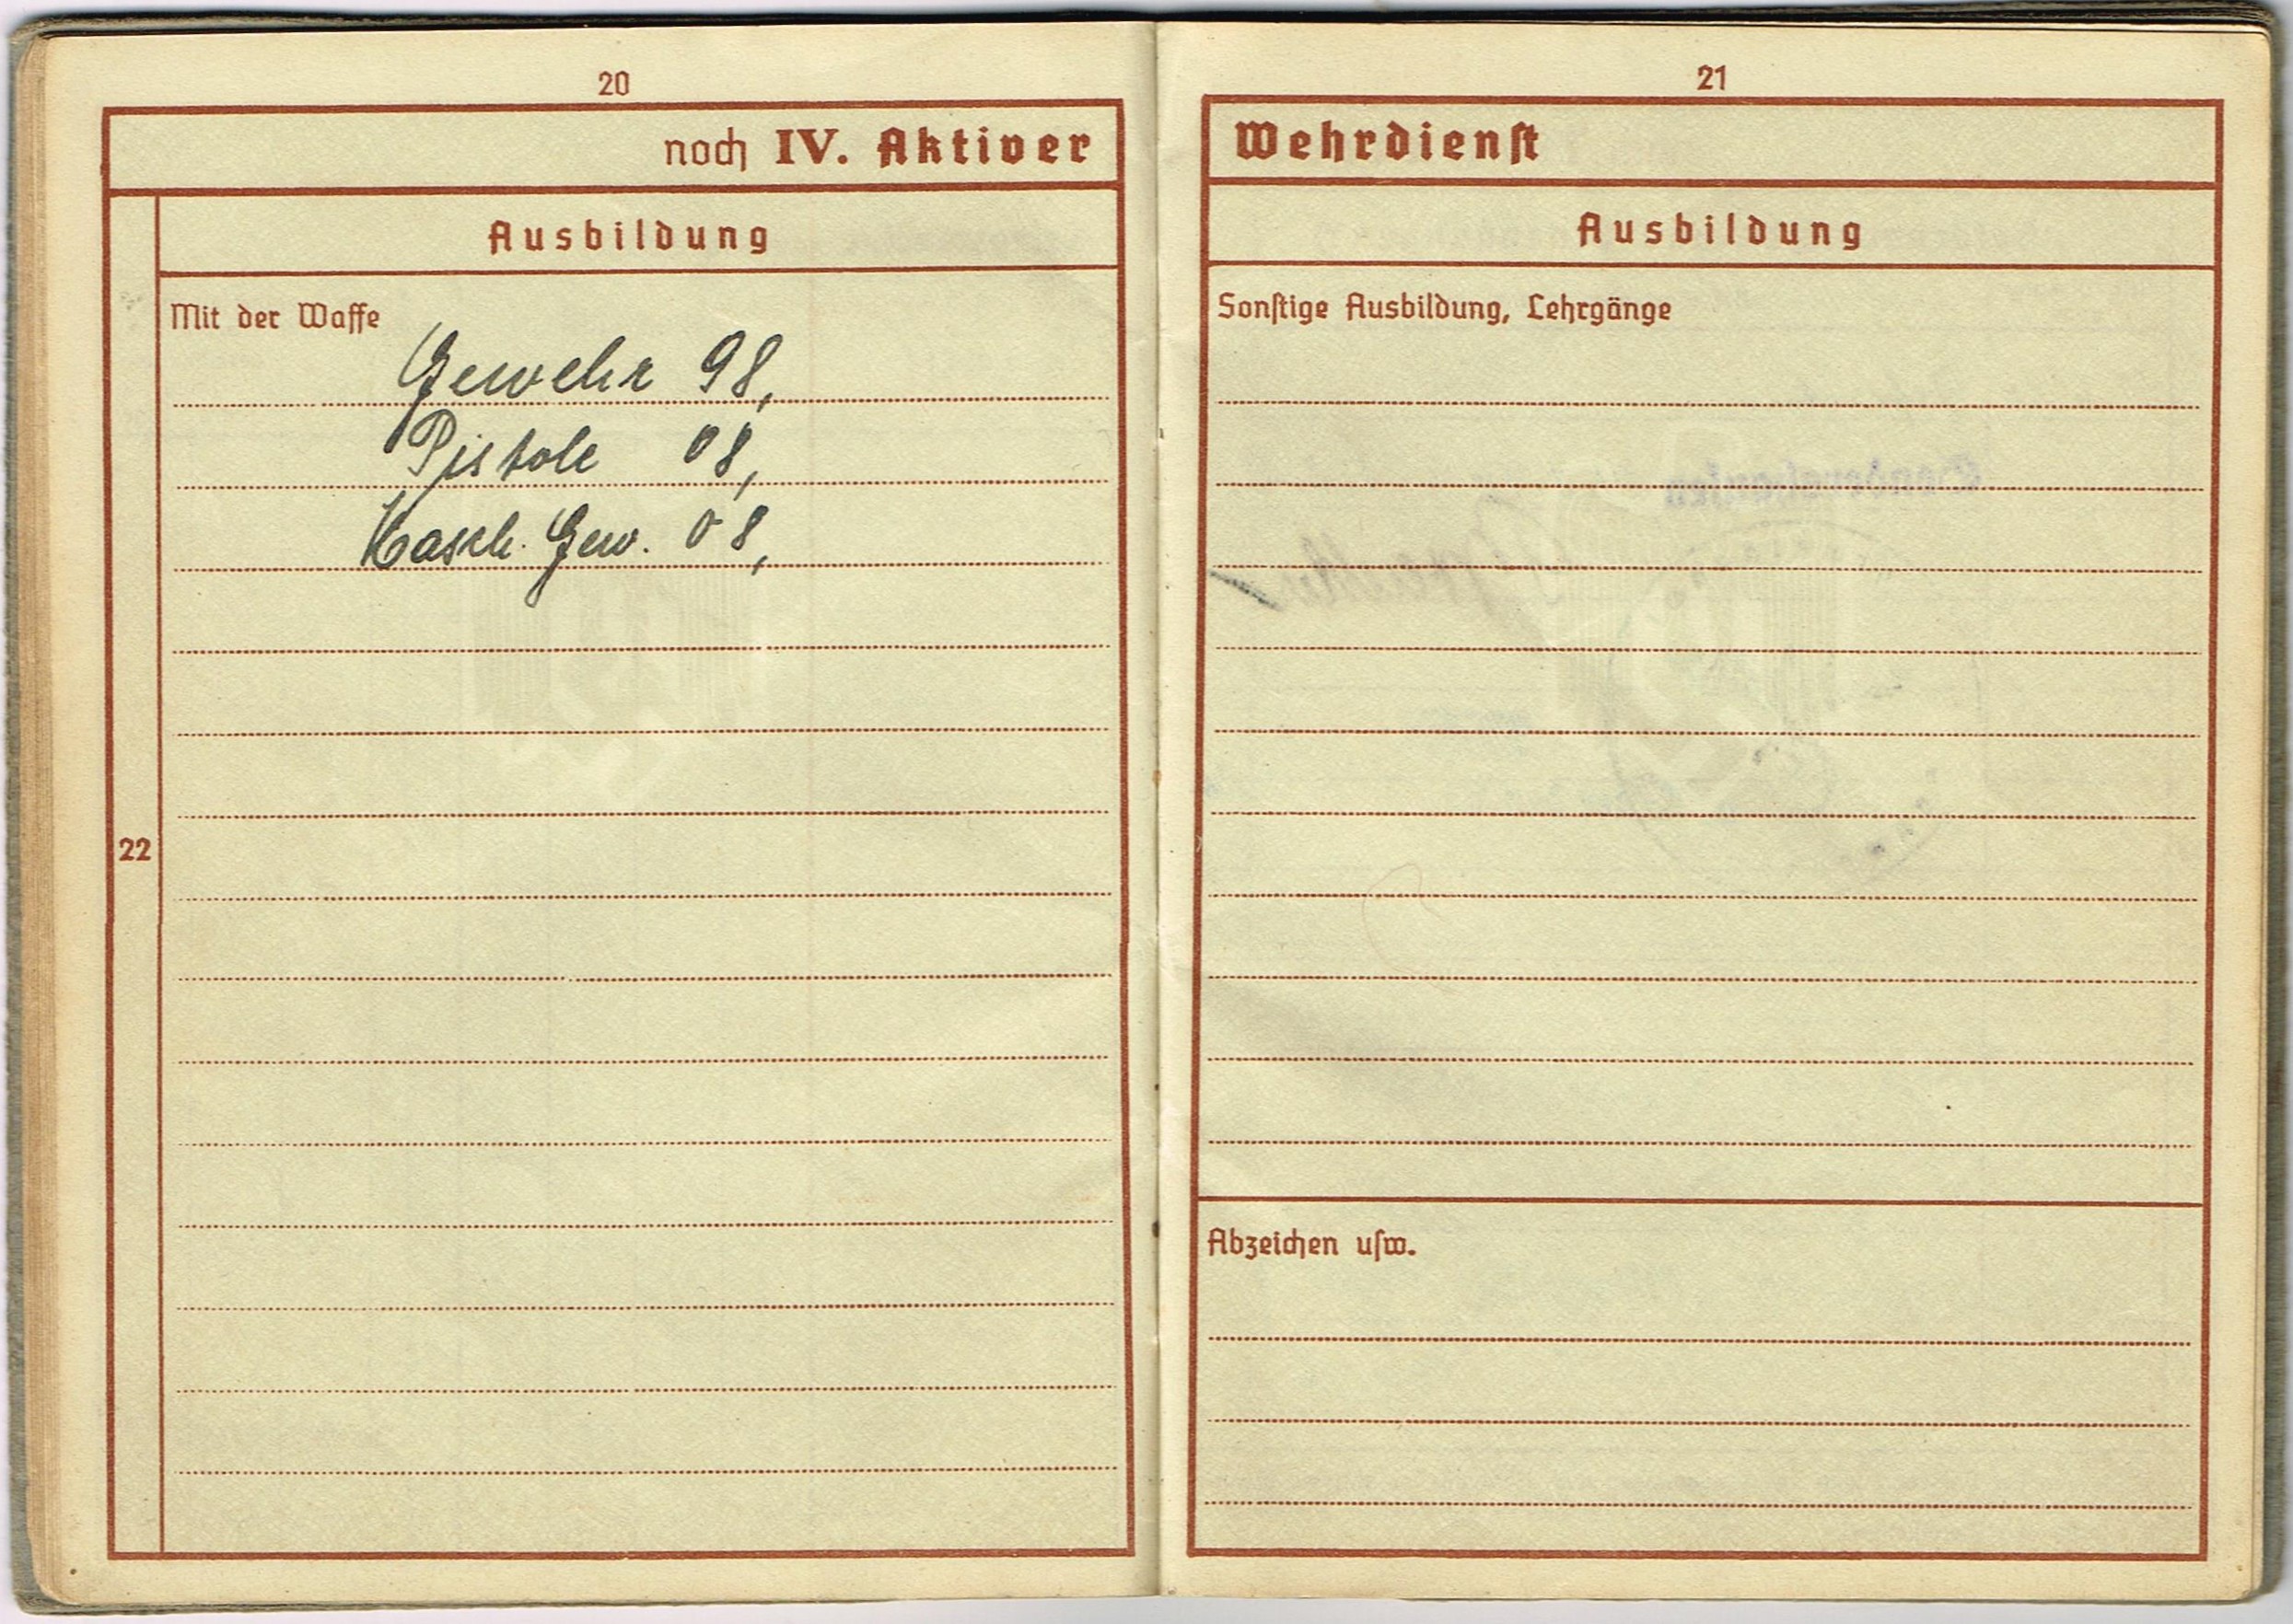 20
noch IV. Aktiver
Ausbildung
Mit der Waffe
Gewehr 98,
Pistole 08,
Masch. Gew. 08,
22
21
Wehrdienſt
Ausbildung
Sonſtige Ausbildung, Lehrgänge
Abzeichen uſw.